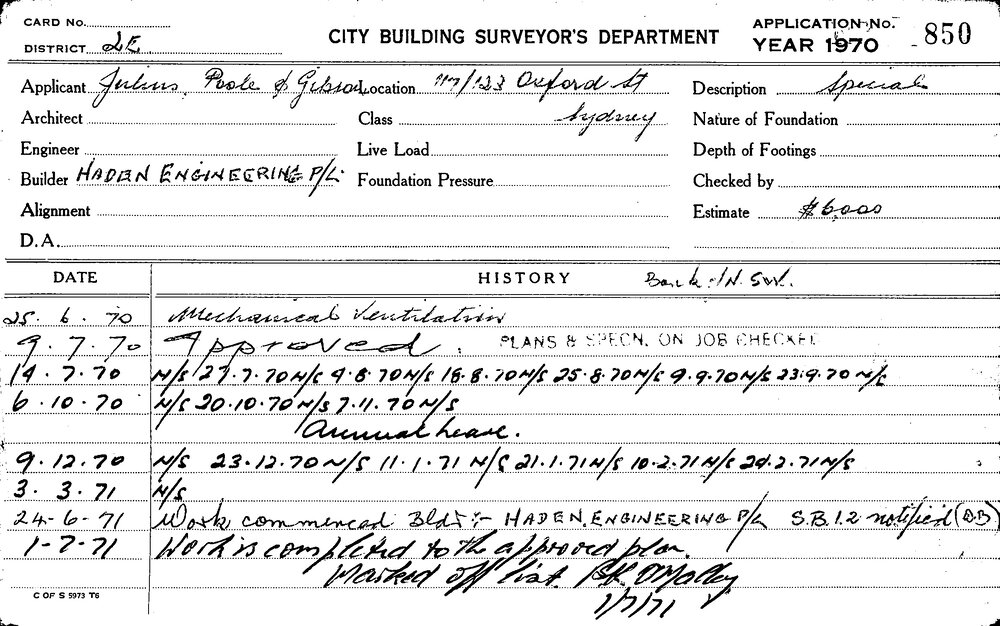 CARD No.
DISTRICT LE
CITY BUILDING SURVEYOR'S DEPARTMENT
APPLICATION No. 850
YEAR 1970
Applicant Julius, Poole & Gibson Location 117/123 Oxford St Description Special
Architect Class Sydney Nature of Foundation
Engineer Live Load Depth of Footings
Builder HADEN ENGINEERING P/L. Foundation Pressure Checked by
Alignment Estimate $6000
D.A.
DATE HISTORY Bank: N.SW.
25. 6. 70 Mechanical Ventilation
9. 7. 70 Approved. PLANS & SPECN. ON JOB CHECKED
14. 7. 70 N/S 27.7.70 N/S 4.8.70 N/S 18.8.70 N/S 25.8.70 N/S 9.9.70 N/S 23.9.70 N/S
6. 10. 70 N/S 20.10.70 N/S 7.11.70 N/S
Annual Leave.
9. 12. 70 N/S 23.12.70 N/S 11.1.71 N/S 21.1.71 N/S 10.2.71 N/S 24.2.71 N/S
3. 3. 71 N/S
24-6-71 Work commenced Bldr:- HADEN. ENGINEERING P/L S.B.1.2 notified (B.B)
1-7-71 Work is completed to the approved plan.
Marked off list. O'Malley
1/7/71
C OF S 5973 T6